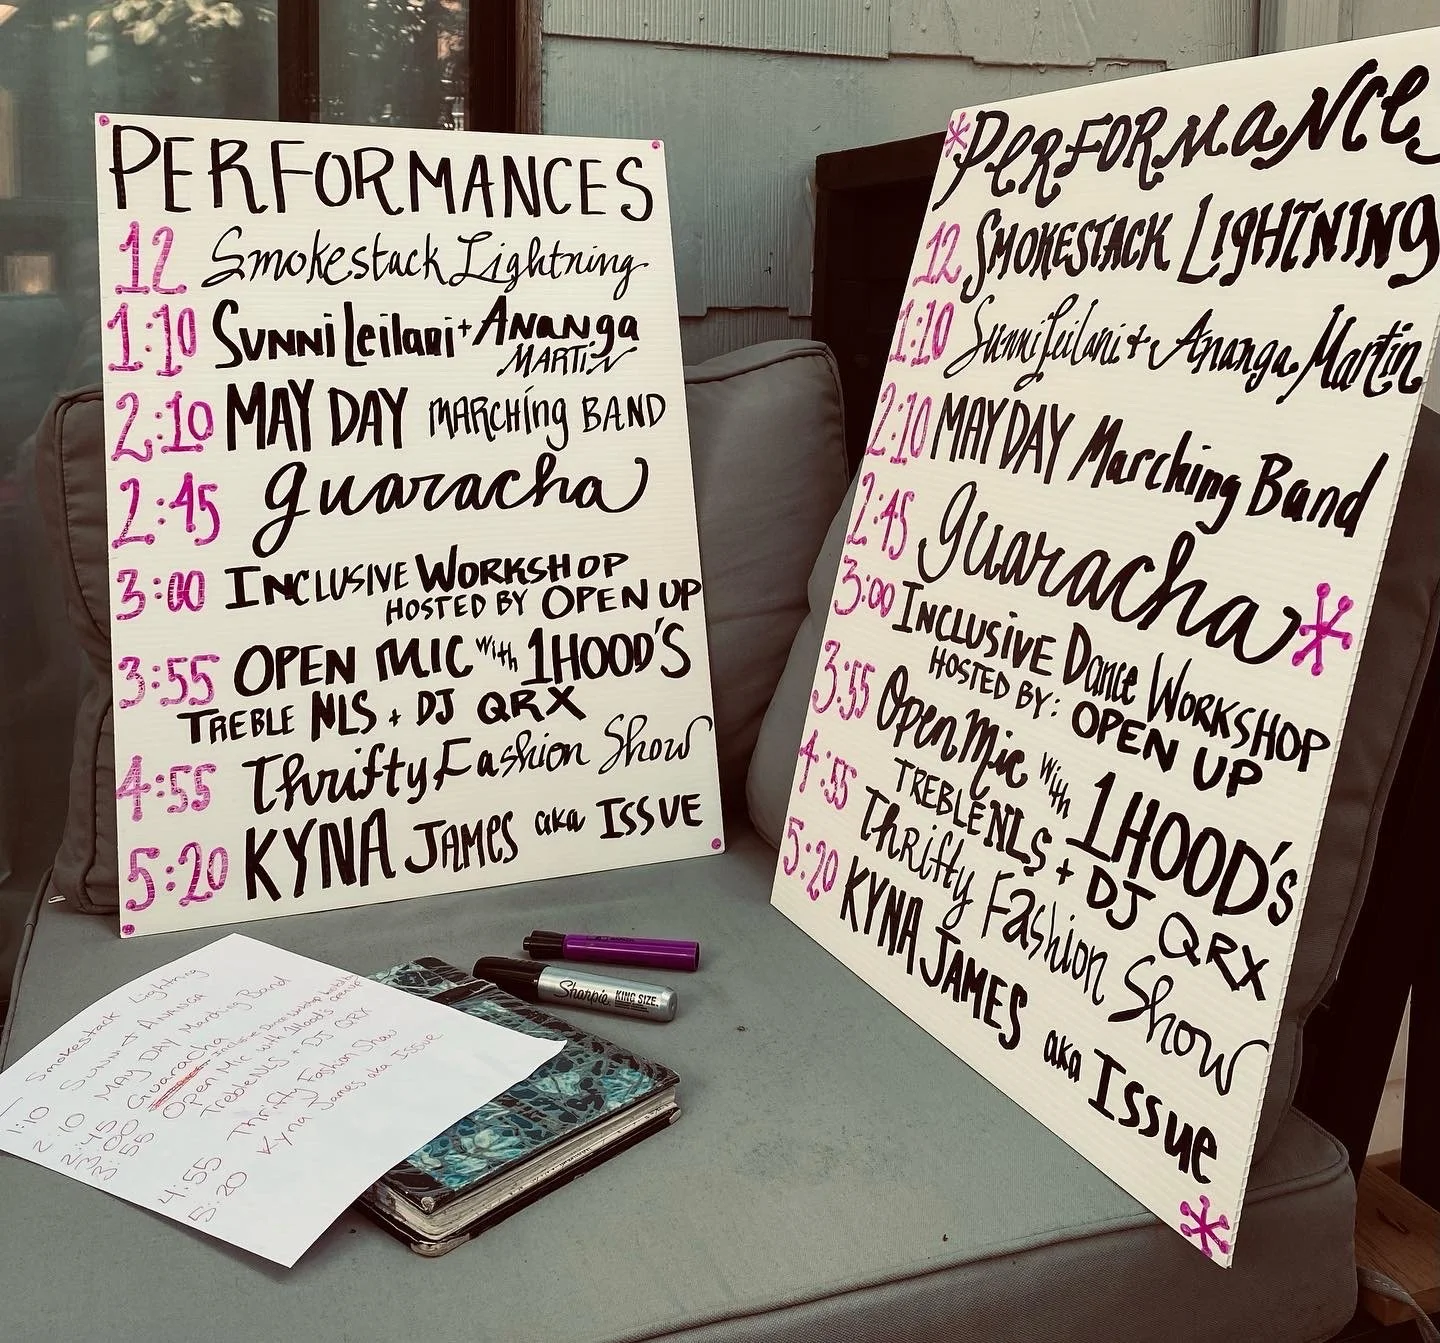 PERFORMANCES
12 Smokestack Lightning
1:10 Sunni Leilani + Ananga
MARTIN
2:10 MAY DAY MARCHing BAND
2:45 guaracha
3:00 INCLUSIVE WORKSHOP
HOSTED BY OPEN UP
3:55 OPEN MIC with 1HOOD'S
TREBLE NLS + DJ QRX
4:55 Thrifty Fashion Show
5:20 KYNA JAMES aka ISSUE
*PERFORMANCE
12 SMOKESTACK LIGHTNING
1:10 Sunni Leilani + Ananga Martin
2:10 MAY DAY Marching Band
2:45 guaracha*
3:00 INCLUSIVE Dance WORKSHOP
HOSTED BY: OPEN UP
3:55 Open Mic with 1HOOD'S
TREBLE NLS + DJ QRX
4:55 Thrifty Fashion Show
5:20 KYNA JAMES aka ISSue
*
Sharpie KING SIZE
Smokestack Lightning
1:10 Sunni + ANANGA
2:10 MAY DAY Marching Band
2:45 Guaracha
3:00 Inclusive Dance Workshop hosted by
OPEN UP
3:55 Open Mic with 1Hood's
Treble NLS + DJ QRX
4:55 Thrifty Fashion Show
5:20 Kyna James aka Issue